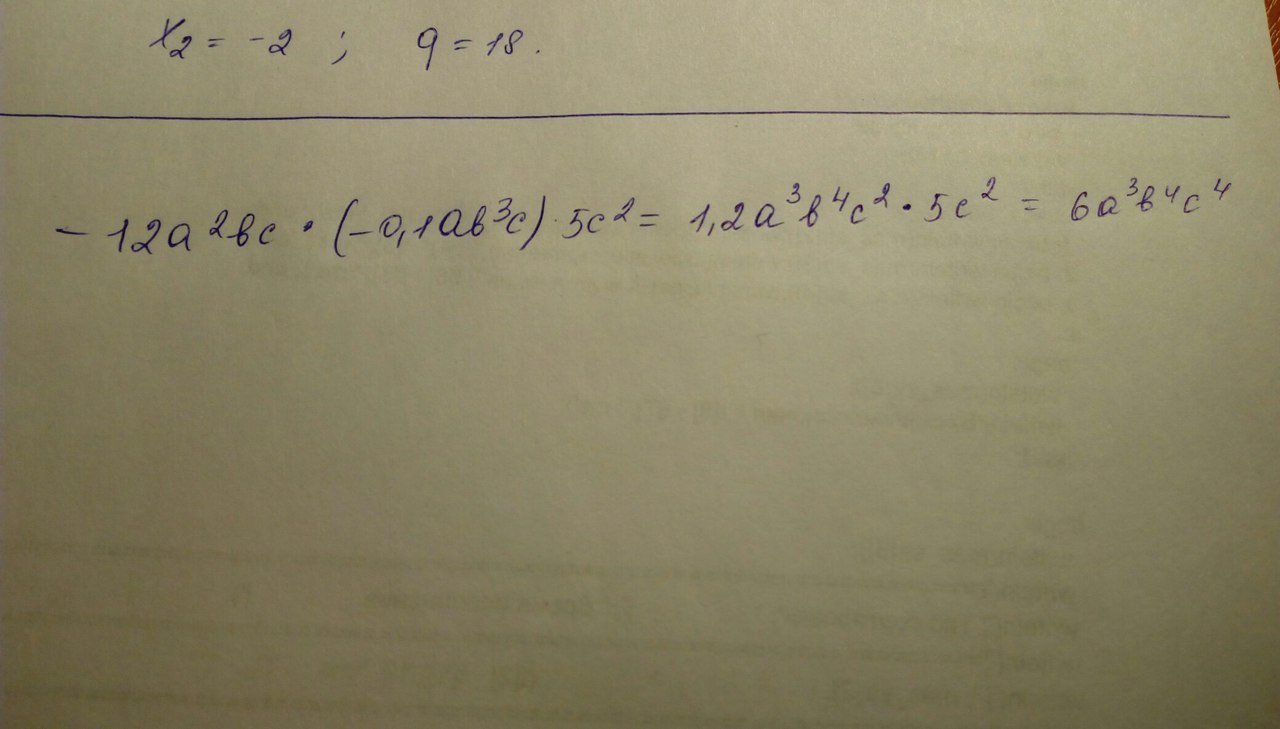 x₂ = -2 ; q = 18.
- 12a²bc · (-0,1ab³c) · 5c² = 1,2a³b⁴c² · 5c² = 6a³b⁴c⁴